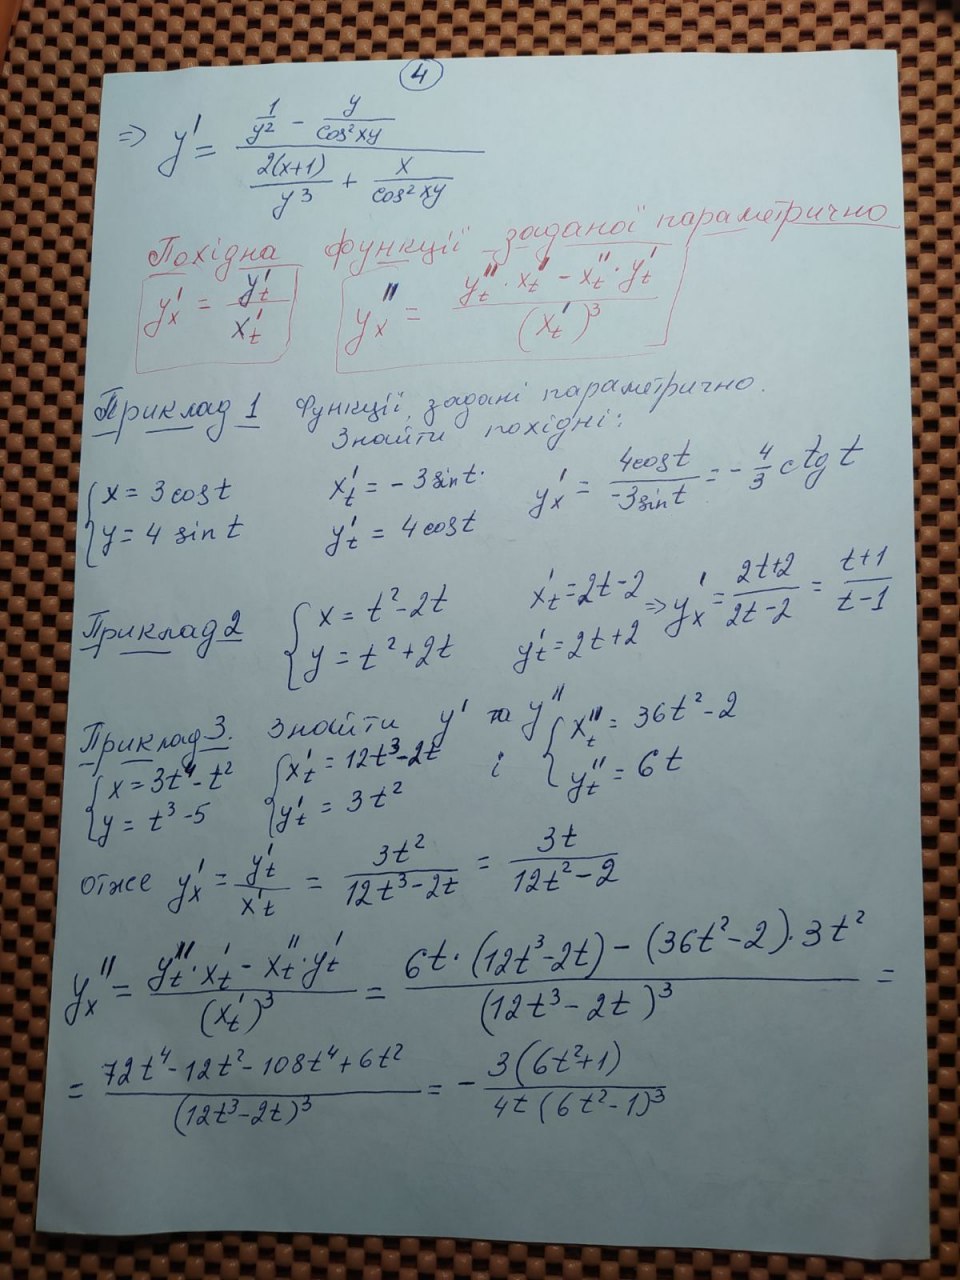 4
=> y' = (1/y² - y/cos²xy) / (2(x+1)/y³ + x/cos²xy)
Похідна функції заданої параметрично
y'ₓ = y'ₜ/x'ₜ   y''ₓ = (y''ₜ · x'ₜ - x''ₜ · y'ₜ)/(x'ₜ)³
Приклад 1 Функції, задані параметрично.
Знайти похідні:
{x = 3 cos t   x'ₜ = - 3 sin t.   y'ₓ = 4cos t/-3sin t = - 4/3 ctg t
{y = 4 sin t   y'ₜ = 4 cos t
Приклад 2 {x = t² - 2t   x'ₜ = 2t - 2 => y'ₓ = (2t+2)/(2t-2) = (t+1)/(t-1)
{y = t² + 2t   y'ₜ = 2t + 2
Приклад 3. Знайти y' та y''
{x = 3t⁴ - t²   {x'ₜ = 12t³ - 2t   і   {x''ₜ = 36t² - 2
{y = t³ - 5   {y'ₜ = 3t²   {y''ₜ = 6t
отже y'ₓ = y'ₜ/x'ₜ = 3t²/(12t³ - 2t) = 3t/(12t² - 2)
y''ₓ = (y''ₜ · x'ₜ - x''ₜ · y'ₜ)/(x'ₜ)³ = (6t · (12t³ - 2t) - (36t² - 2) · 3t²)/(12t³ - 2t)³ =
= (72t⁴ - 12t² - 108t⁴ + 6t²)/(12t³ - 2t)³ = - 3(6t² + 1)/4t(6t² - 1)³